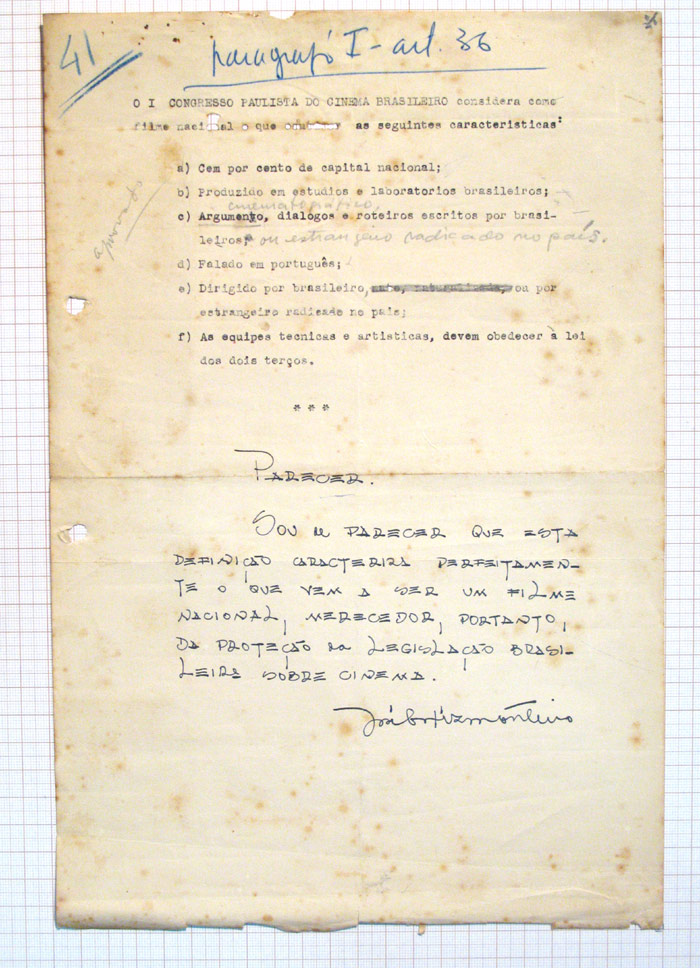 41
paragrafo I - art. 36
O I CONGRESSO PAULISTA DO CINEMA BRASILEIRO considera como
filme nacional o que as seguintes caracteristicas:
a) Cem por cento de capital nacional;
b) Produzido em estudios e laboratorios brasileiros;
cinematográfico,
c) Argumento, dialogos e roteiros escritos por brasi-
leiros; ou estrangeiro radicado no país.
aprovado
d) Falado em português;
e) Dirigido por brasileiro, nato, naturalizado, ou por
estrangeiro radicado no pais;
f) As equipes tecnicas e artisticas, devem obedecer à lei
dos dois terços.
* * *
PARECER.
SOU de PARECER QUE ESTA
DEFINIÇÃO CARACTERIZA PERFEITAMEN-
TE O QUE VEM A SER UM FILME
NACIONAL, MERECEDOR, PORTANTO,
DA PROTEÇÃO da LEGISLAÇÃO BRASI-
LEIRA SÔBRE CINEMA.
José Ortiz Monteiro